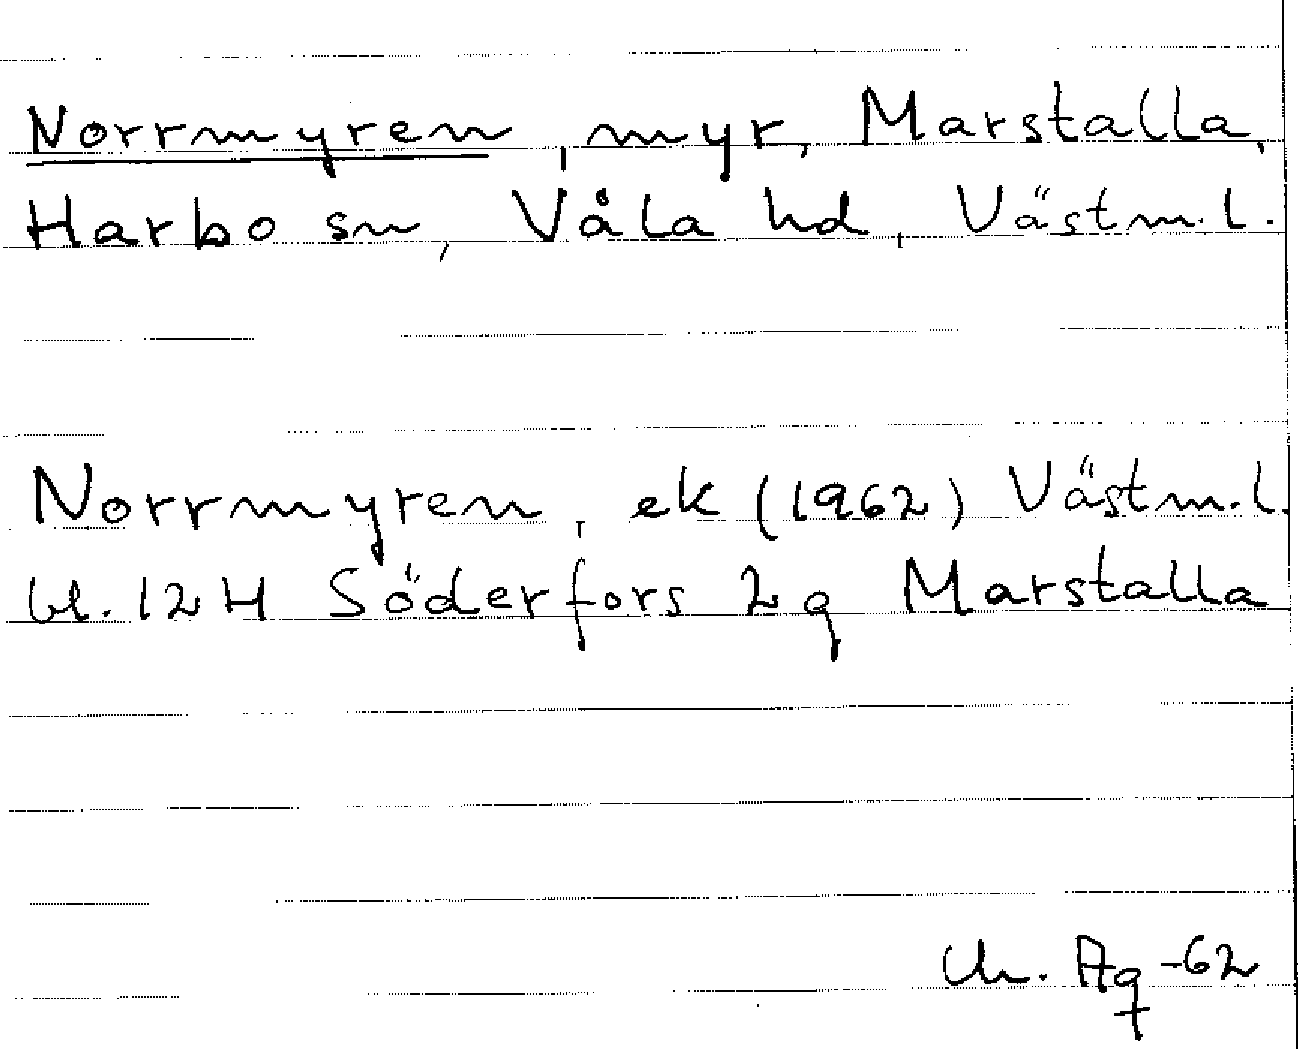 Norrmyren, myr, Marstalla,
Harbo sn, Våla hd, Västm.l.
Norrmyren, ek (1962) Västm.l.
bl. 12H Söderfors 2g Marstalla
Ag -62